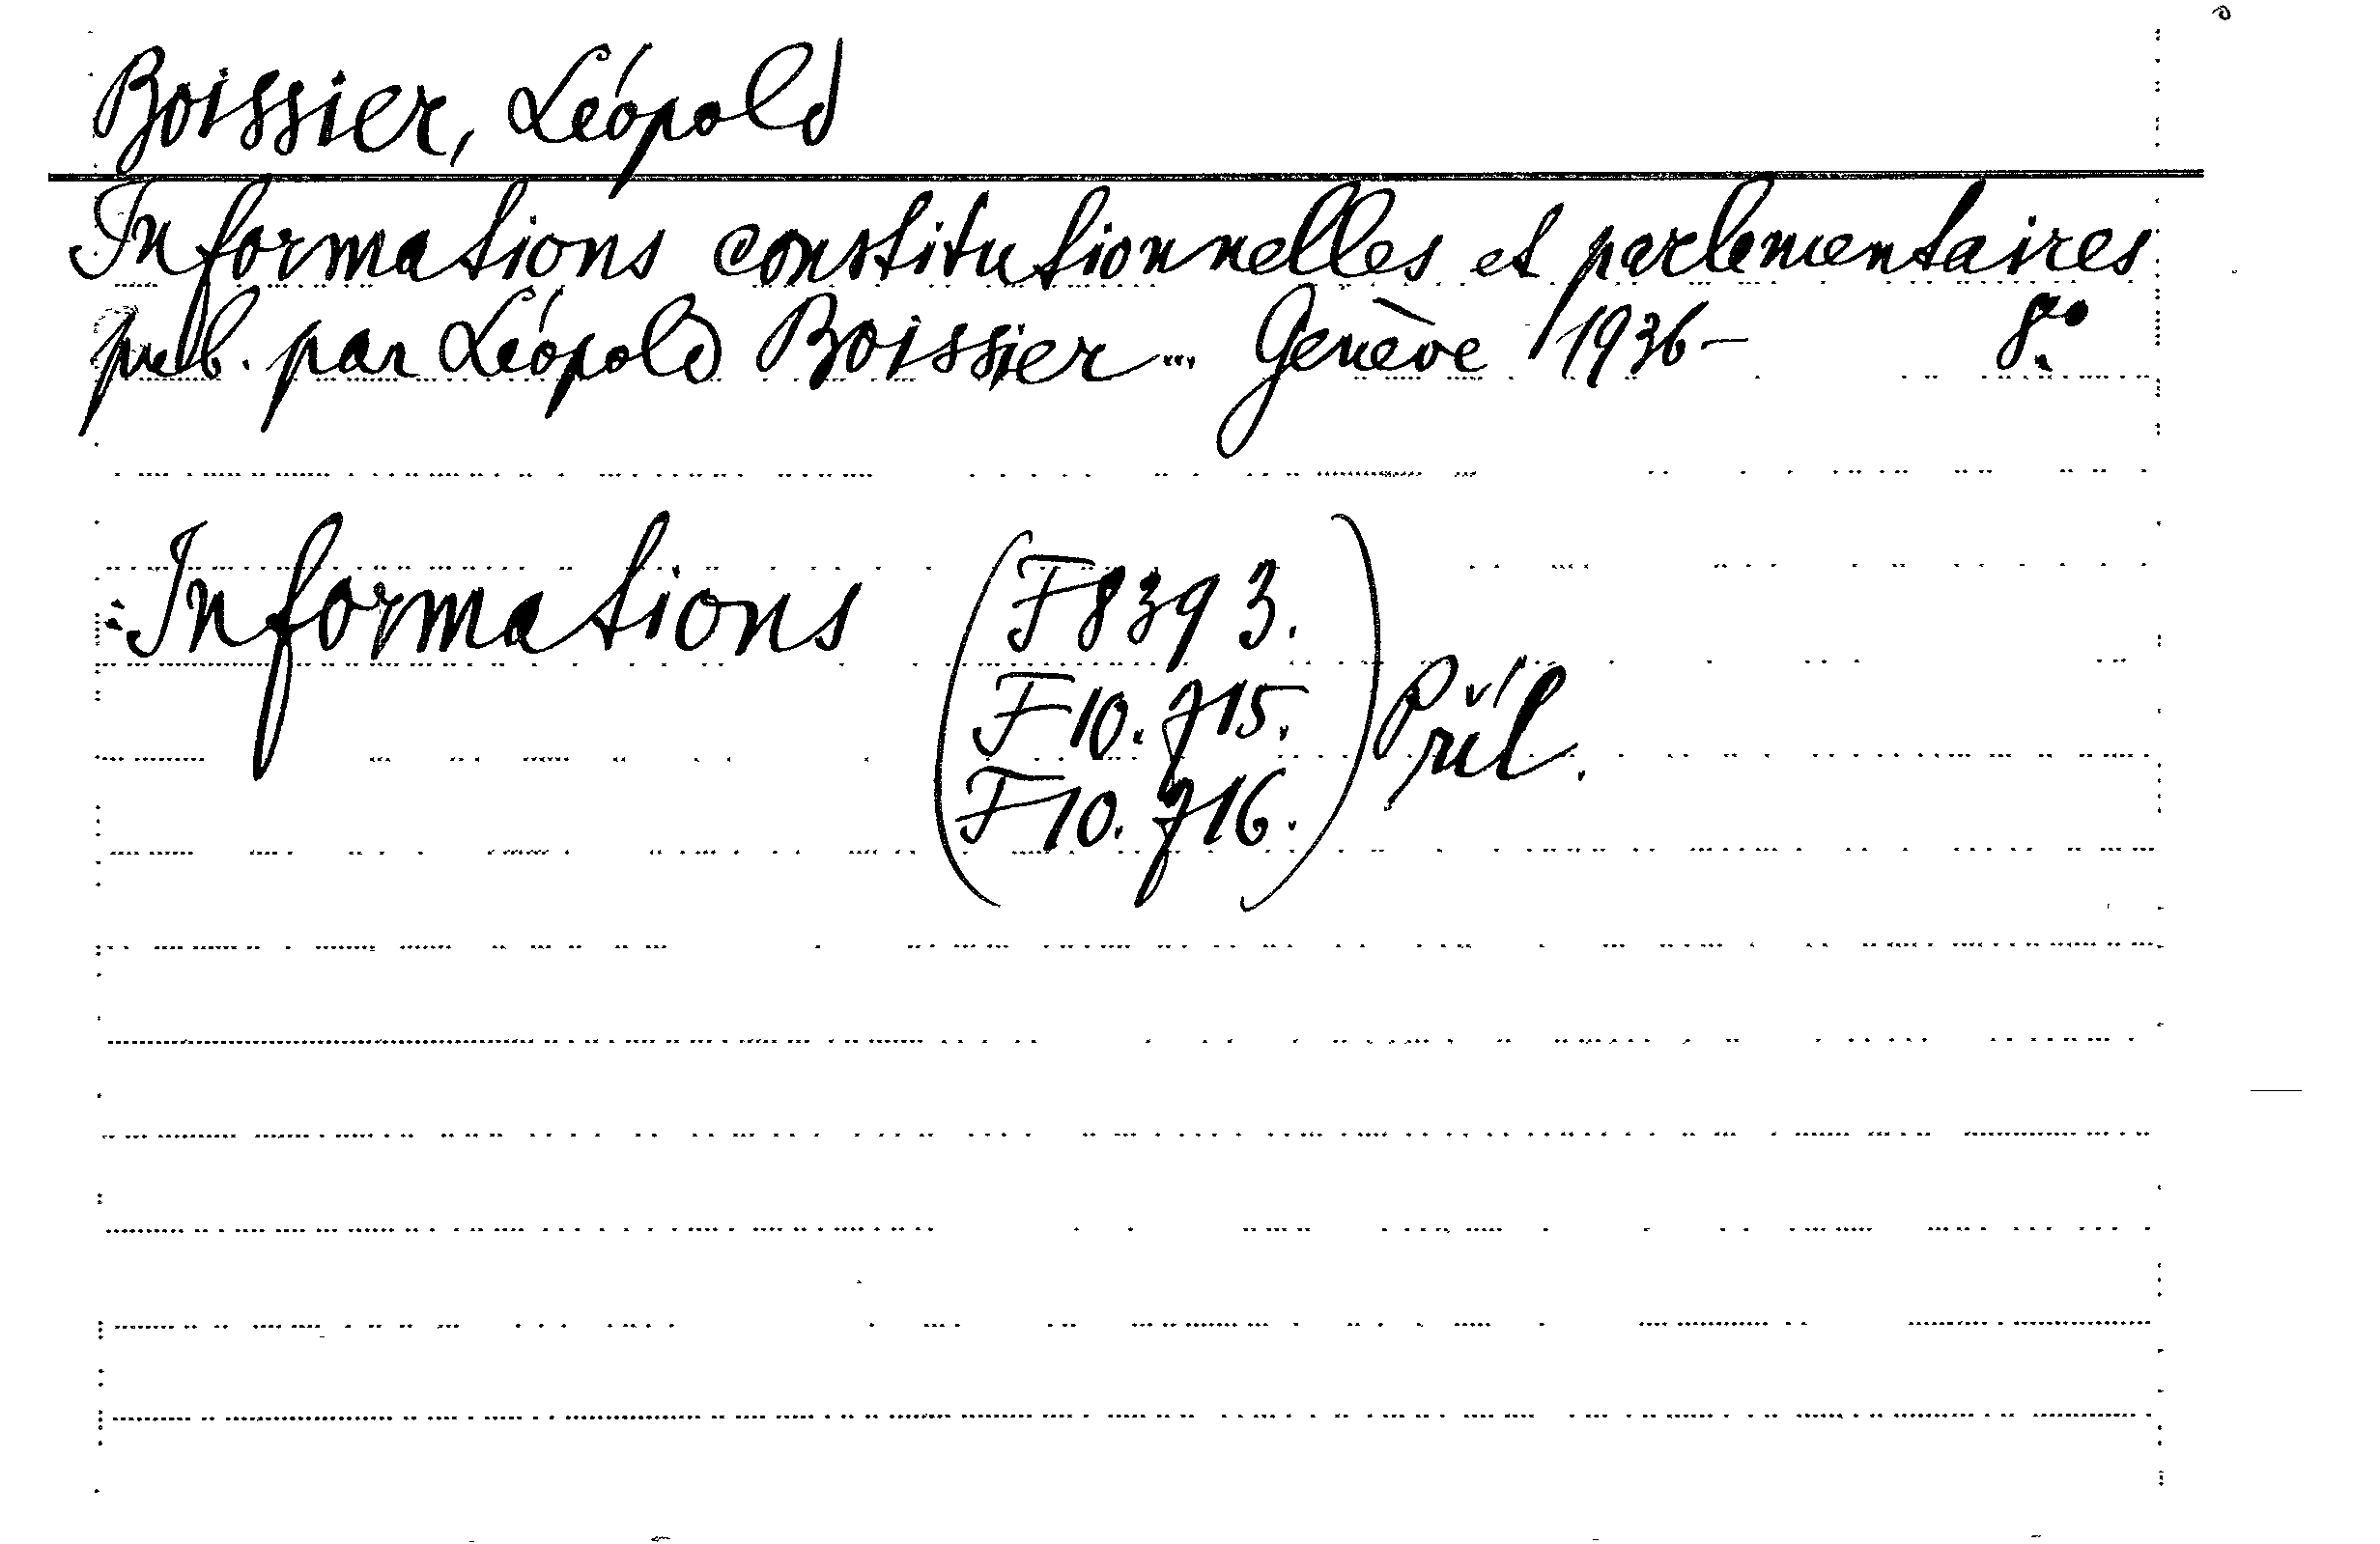 Boissier, Léopold
Informations constitutionnelles et parlementaires
pub. par Léopold Boissier... Genève 1936- 8°.
Informations (F 8393.
F 10.715.
F 10.716.) Příl.